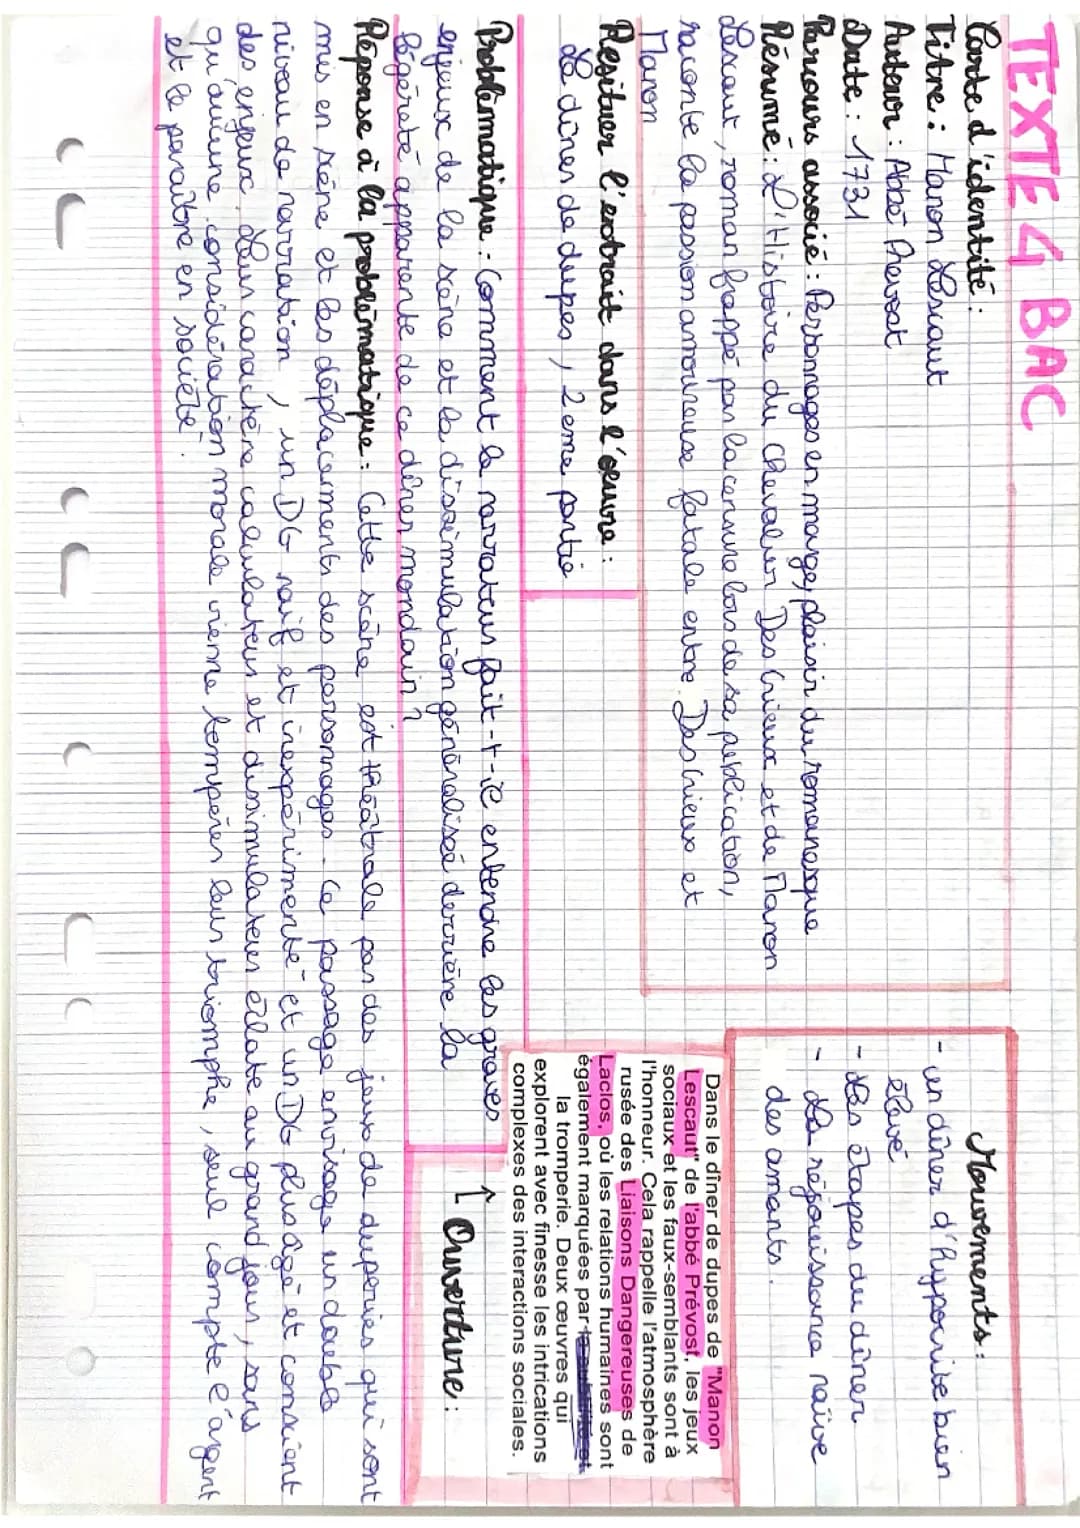 TEXTE 4 BAC
Carte d'identité :
Titre : Manon Lescaut
Auteur : Abbé Prevost
Date : 1731
Parcours associé : Personnages en marge, plaisir du romanesque
Résumé : L'Histoire du Chevalier Des Grieux et de Manon
Lescaut, roman frappé par la censure lors de sa publication,
raconte la passion amoureuse fatale entre Des Grieux et
Manon
Resituer l'extrait dans l'œuvre :
Le dîner de dupes, 2ème partie
Mouvements :
- un dîner d'hypocrite bien
élevé
- Les étapes du dîner
- La réjouissance naïve
des amants.
Dans le dîner de dupes de "Manon
Lescaut" de l'abbé Prévost, les jeux
sociaux et les faux-semblants sont à
l'honneur. Cela rappelle l'atmosphère
rusée des Liaisons Dangereuses de
Laclos, où les relations humaines sont
également marquées par
la tromperie. Deux œuvres qui
explorent avec finesse les intrications
complexes des interactions sociales.
↑ Ouverture :
Problématique : Comment le narrateur fait-t-il entendre les graves
enjeux de la scène et la dissimulation généralisée derrière la
légèreté apparente de ce dîner mondain ?
Réponse à la problématique : Cette scène est théâtrale par des jeux de duperies qui sont
mis en scène et les déplacements des personnages. Ce passage envisage un double
niveau de narration, un DG naïf et inexpérimenté et un DG plus agé et conscient
des enjeux. Leur caractère calculateur et dissimulateur éclate au grand jour, sans
qu'aucune considération morale vienne tempérer leur triomphe, seul compte l'argent
et le paraître en société.